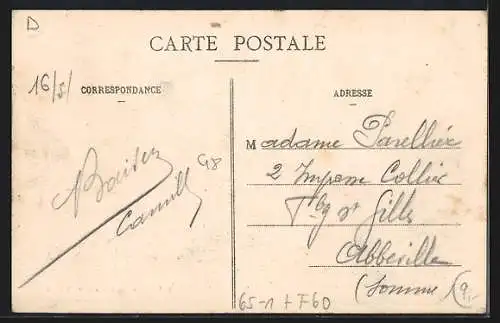 D
CARTE POSTALE
16/5/
CORRESPONDANCE
ADRESSE
Madame Parellier
2 Impasse Collier
Fbg St Gilles
Abbeville
(Somme)
Baisers
G8
Camille
65-1 + F60
9,-